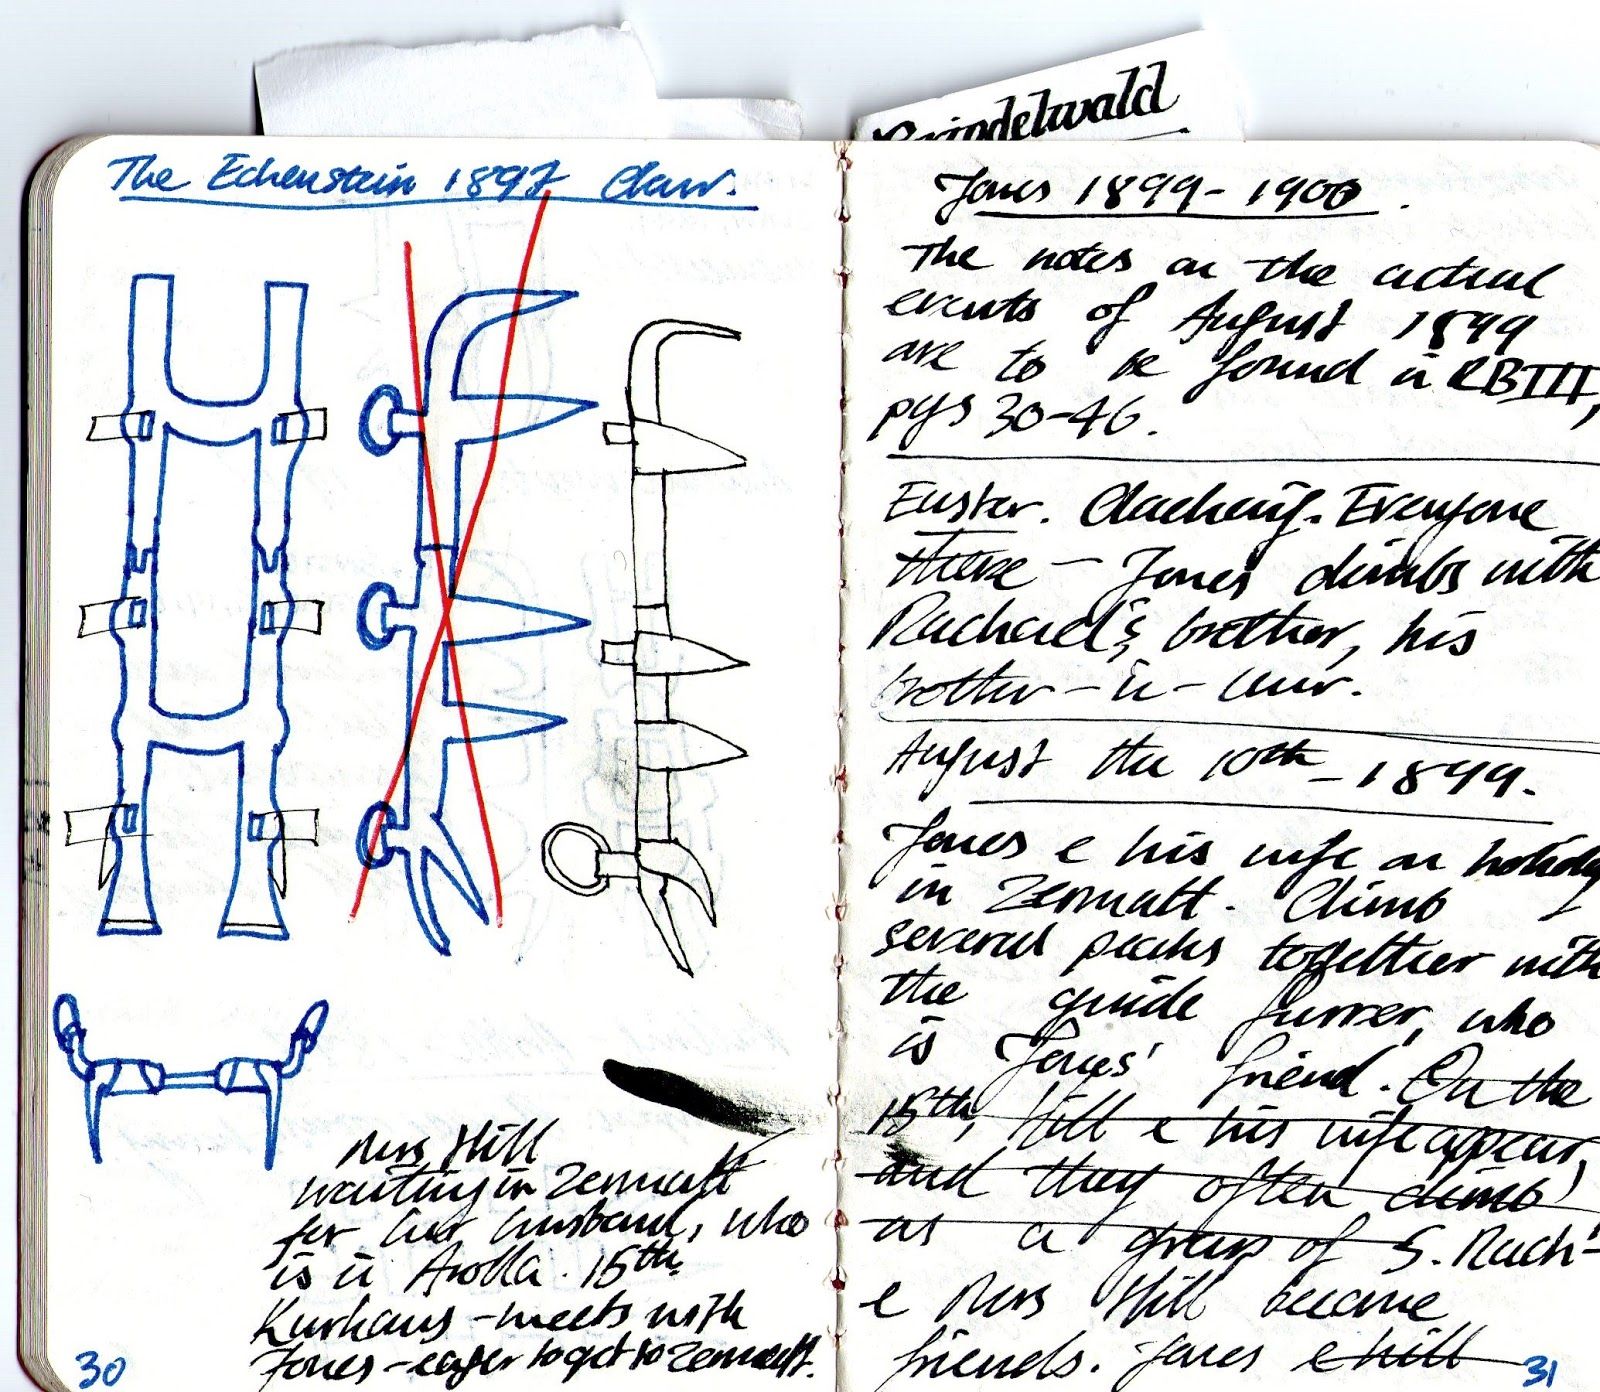 Grindelwald
The Eckenstein 1897 Claw.
Mrs Hill
waiting in Zermatt
for her husband, who
is in Arolla. 15th.
Kurhaus - meets with
Jones - eager to get to Zermatt.
30
Jones 1899-1900.
The notes on the actual
events of August 1899
are to be found in RBIII,
pgs 30-46.
Easter. Clachaig. Everyone
there - Jones climbs with
Rachael's, brother, his
brother-in-law.
August the 10th - 1899.
Jones e his wife on holiday
in Zermatt. Climb
several peaks together with
the guide Furrer, who
is Jones' friend. On the
15th, Hill e his wife appear,
and they often climb
as a group of 5. Rach-
e Mrs Hill become
friends. Jones e Hill
31